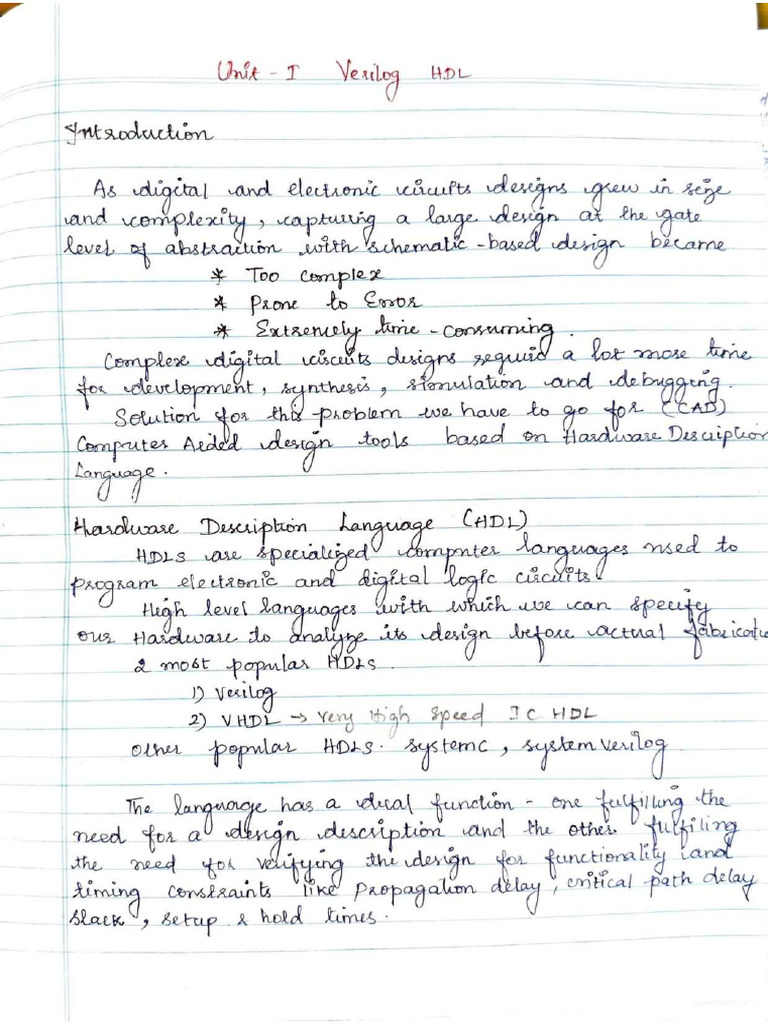 Unit - I Verilog HDL
Introduction
As digital and electronic circuits designs grew in size
and complexity, capturing a large design at the gate
level of abstraction with schematic-based design became
* Too complex
* Prone to Error
* Extremely time-consuming.
Complex digital circuits designs requid a lot more time
for development, synthesis, simulation and debugging.
Solution for this problem we have to go for (CAD)
Computer Aided design tools based on Hardware Description
Language.
Hardware Description Language (HDL)
HDLs are specialized computer languages used to
program electronic and digital logic circuits.
High level languages with which we can specify
our Hardware to analyze its design before actual fabricatio
2 most popular HDLs.
1) Verilog
2) VHDL → Very High Speed IC HDL
Other popular HDLs. systemc, system verilog
The language has a dual function - one fulfilling the
need for a design description and the other fulfiling
the need for verifying the design for functionality and
timing constraints like propagation delay, critical path delay
slack, setup & hold times.